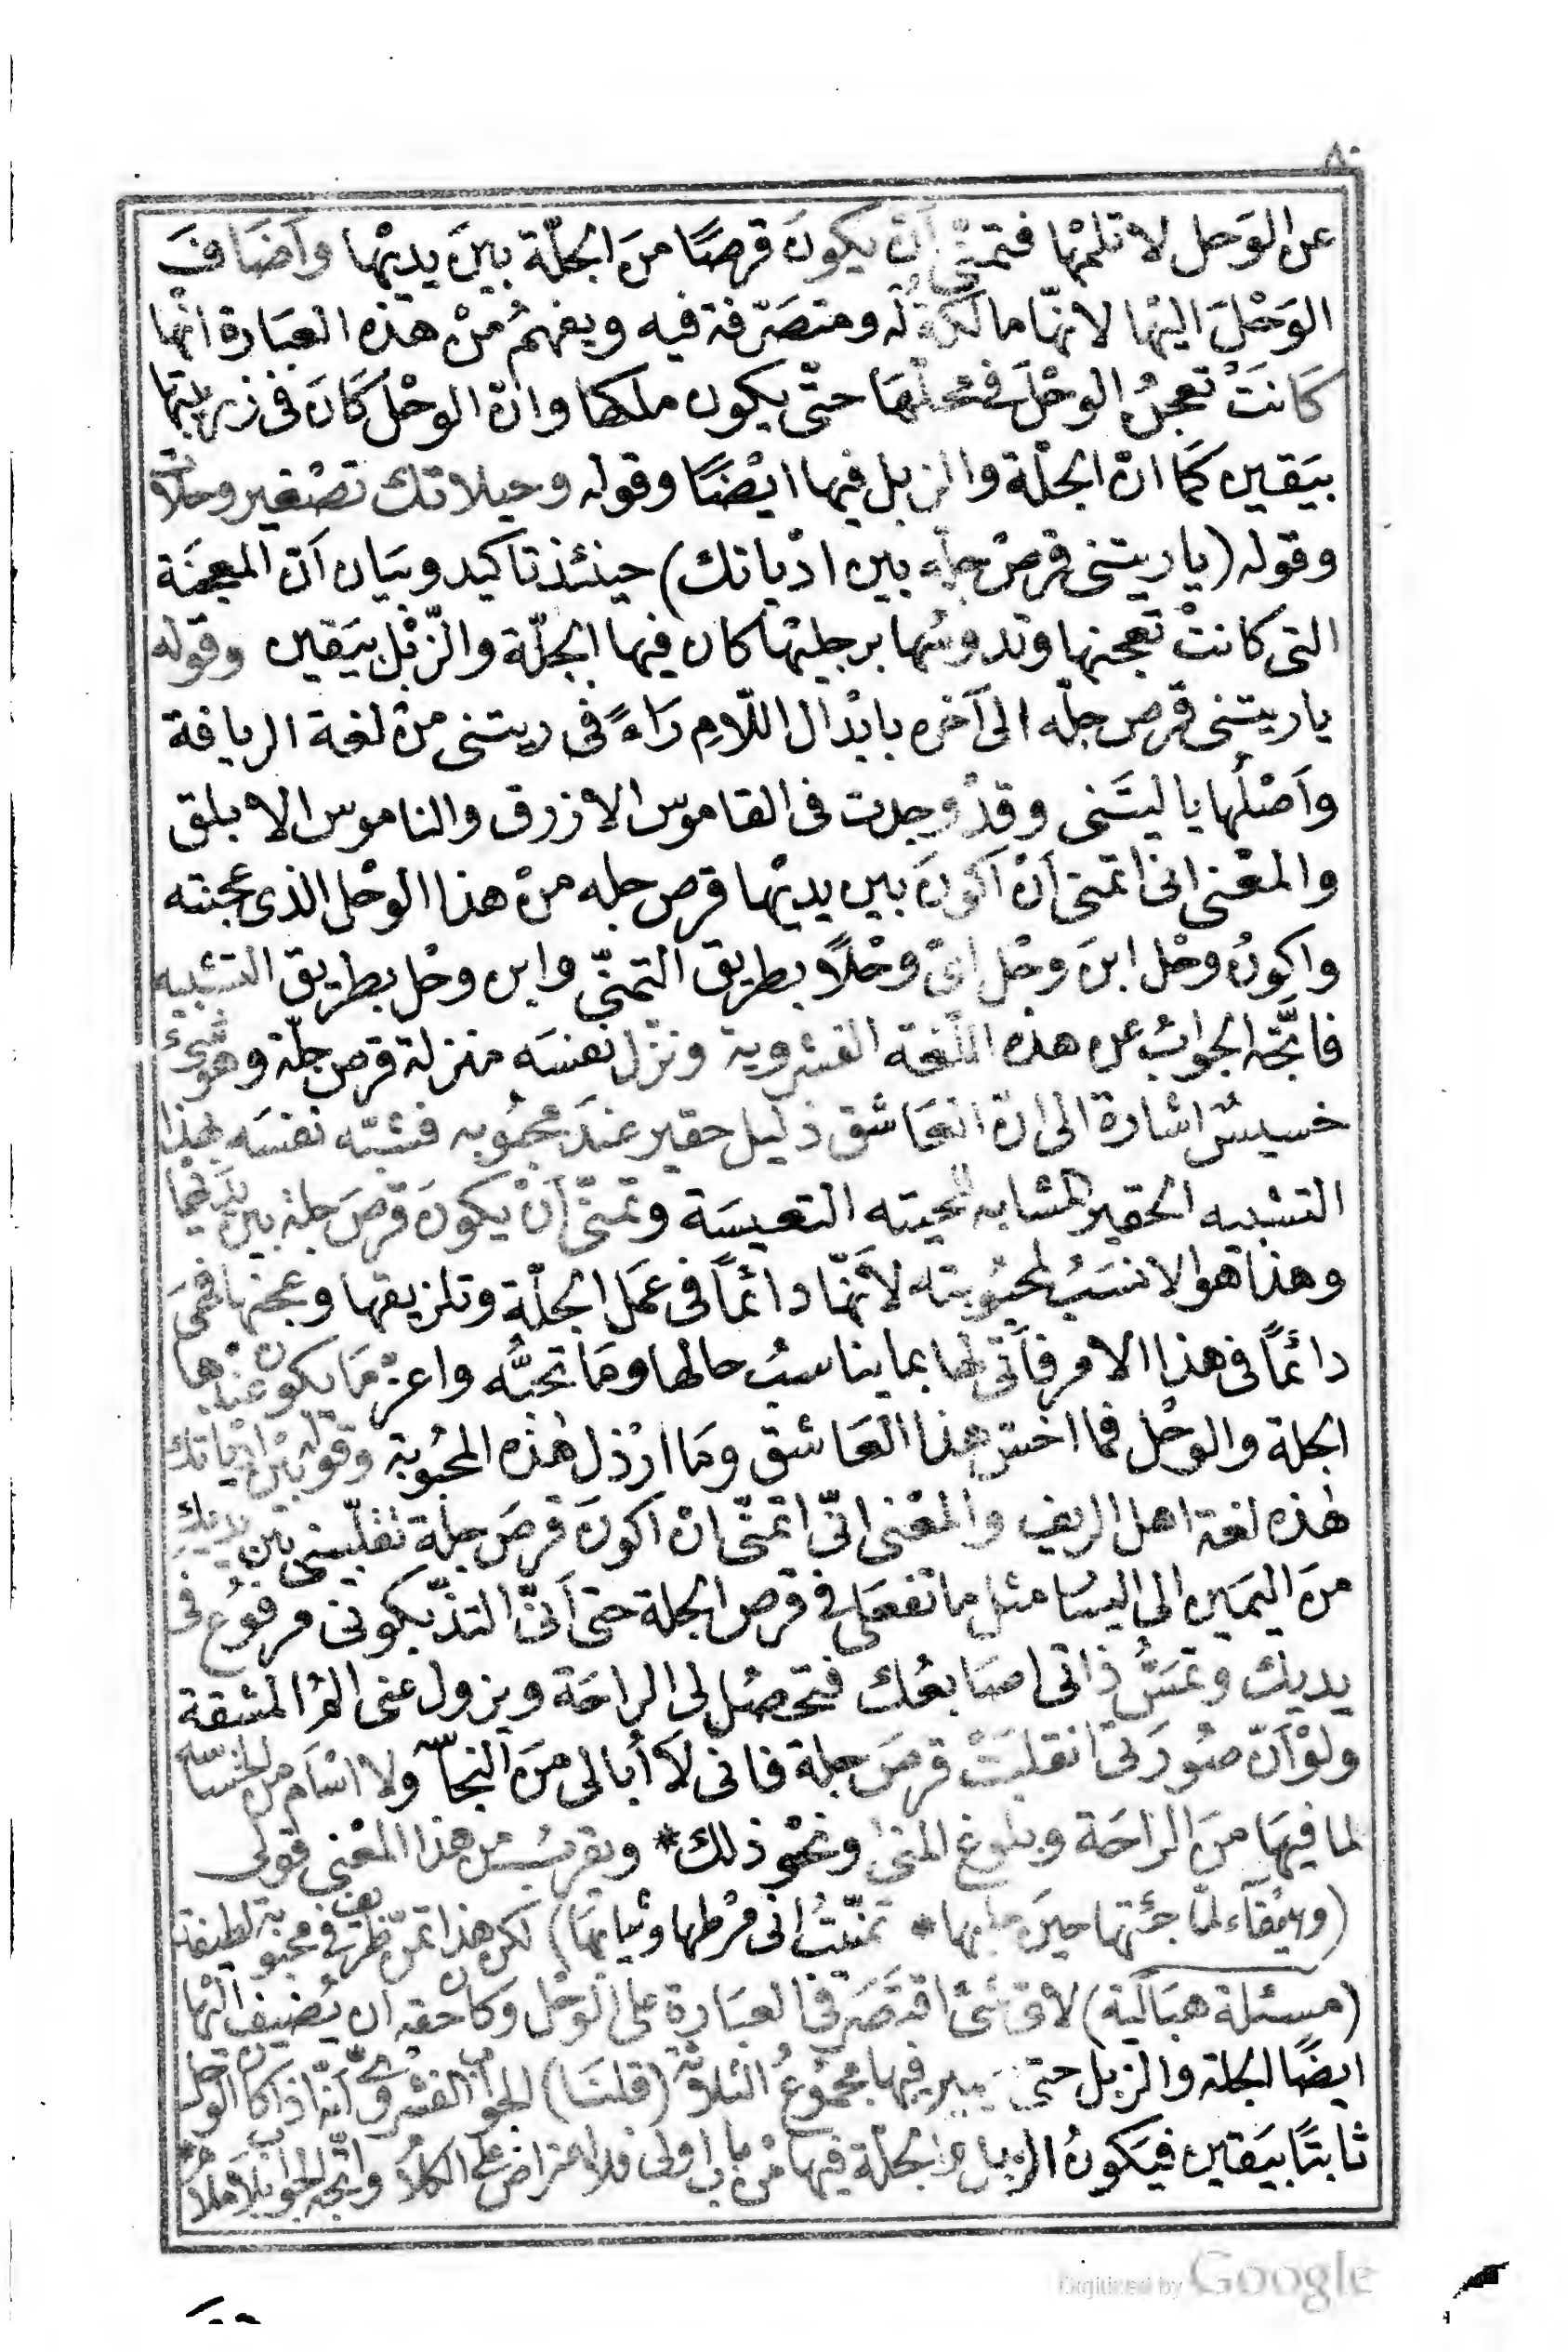 ٨٠
عن الوَحل لا تلمْها فتمنّى اَنْ يكونَ قرصًا منَ الجلّة بينَ يديْها واَضَافَ
الوَحْلَ اليْها لانّها مالكةٌ له ومتصَرّفة فيه ويفهمُ منْ هذه العبَارة انّها
كَانتْ تعجنُ الوحْلَ في محلّهَا حتّى يكون ملكها وانّ الوحْل كَانَ في زريبتها
بيَقين كمَا انّ الجلّة والزبل فيها ايْضًا وقوله وحيلاتك تصْغير وحلاة
وقوله (ياريتنى قرصْ جلّه بين ادْياتك) حينئذ تاكيد وبيَان اَنّ المعجنَة
التى كانتْ تعجنها وتدوسُها برجليْها كان فيها الجلّة والزّبْل بيَقين وقوله
ياريتنى قرص جلّه الى آخره بابْدال اللّامِ رَاءً في ريتنى منْ لغة الريافة
واَصْلُها ياليتَنى وقدْ وجدت فى القاموس الازرق والناموس الابلق
والمعْنى انى اتمنى اَنْ اكونَ بين يديْها قرص جله منْ هذا الوحْل الذى عجنته
واكونُ وحْل ابنَ وحْل اىْ وحْلاً بطريق التمنّى وابن وحْل بطريق التشبيه
فاتّجَه الجوابُ عن هذه اللّغة الفشروية ونزّل نفسَه منزلة قرص جلّة وهو شئ
خسيسٌ اشارة الى انّ العَاشق ذليل حقير عندَ محبُوبه فشبّه نفسَه بهذا
التشبيه الحقير المشابه للحيته التعيسَة وتمنّى اَنْ يكونَ قرصَ جلة بين يدَيْها
وهذا هو الانسَبُ لمحبُوبته لاَنّها دائمًا فى عمَل الجلّة وتلزيقها وعجنها فهىَ
دائمًا فى هذا الامر فاَتى لها بما يناسبُ حالها ومَا تحبُّه واعزّ مَا يكون عندها
الجلة والوحْل فما اخسّ هذا العَاشق ومَا ارْذل هٰذه المحْبوبة وقوله بيْن ادْياتك
هٰذه لغة اهل الريف والمعْنى انّى اتمنّى انْ اكونَ قرصَ جلة تقلّبينى بيْن يديكِ
منَ اليمَين الى اليسَار مثل ما تفعَلى فى قرص الجلة حتى اَنّى التذّ بكونى مرفوعٌ فى
يديك وتمَسُّ ذاتى اصَابعُك فتحصُل لى الراحَة ويزول عنى الم المشقة
ولوْ اَنّ صُورَتى انقلبَتْ قرصَ جلة فانى لاَ اُبالى منَ النجَاسة ولا اسْاَم من الخسَاسة
لما فيهَا منَ الراحَة وبلوغ المنى ونحْو ذلك * ويقربُ من هذا المعْنى قولى
(وهيْفآء لمّا جئتها حينَ حليها * تمنّيْتُ انى قرْطها وثيابهَا) لكن هذا تمنّ ظريف فى محبوبة لطيفة
(مسئلة هبَاليّة) لاىّ شئ اقتصَر فى العبَارة على الوحْل وكان حقه ان يُضيف اليْها
ايضًا الجلة والزبل حتى يصير فيها مجموُع الثلاثة (قلنَا) الجواب الفشروى انّه اذا كان الوحل
ثابتًا بيَقين فيَكونُ الزبل والجلّة فيها منْ باب اولى فلا اعتراض على الكلام واتّجه الجواب بلا ملام
Digitized by Google